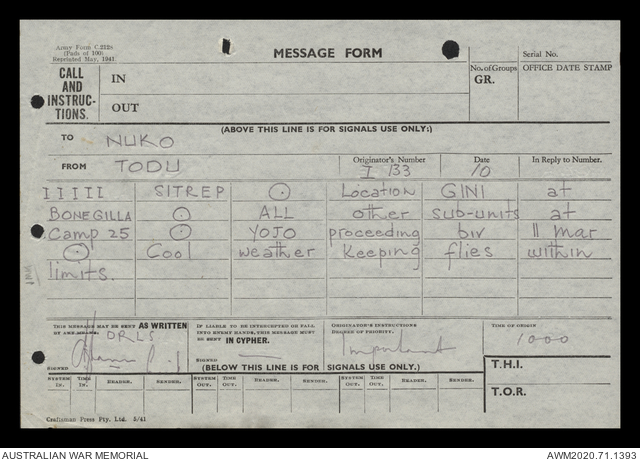 Army Form C.2128
(Pads of 100)
Reprinted May, 1941.
MESSAGE FORM
Serial No.
CALL AND INSTRUC-TIONS.
IN
OUT
No. of Groups GR.
OFFICE DATE STAMP
(ABOVE THIS LINE IS FOR SIGNALS USE ONLY:)
TO NUKO
FROM TODU
Originator's Number I 133
Date 10
In Reply to Number.
IIIII SITREP ⊙ Location GINI at
BONEGILLA ⊙ ALL other sub-units at
Camp 25 ⊙ YOJO proceeding biv 11 Mar
⊙ Cool weather keeping flies within
limits.
THIS MESSAGE MAY BE SENT AS WRITTEN BY ANY MEANS.
DRLS
SIGNED
IF LIABLE TO BE INTERCEPTED OR FALL INTO ENEMY HANDS, THIS MESSAGE MUST BE SENT IN CYPHER.
SIGNED
ORIGINATOR'S INSTRUCTIONS DEGREE OF PRIORITY.
Important
TIME OF ORIGIN
1000
(BELOW THIS LINE IS FOR SIGNALS USE ONLY.)
T.H.I.
SYSTEM IN. TIME IN. READER. SENDER. SYSTEM OUT. TIME OUT. READER. SENDER. SYSTEM OUT. TIME OUT. READER. SENDER.
T.O.R.
Craftsman Press Pty. Ltd. 5/41
AUSTRALIAN WAR MEMORIAL
AWM2020.71.1393